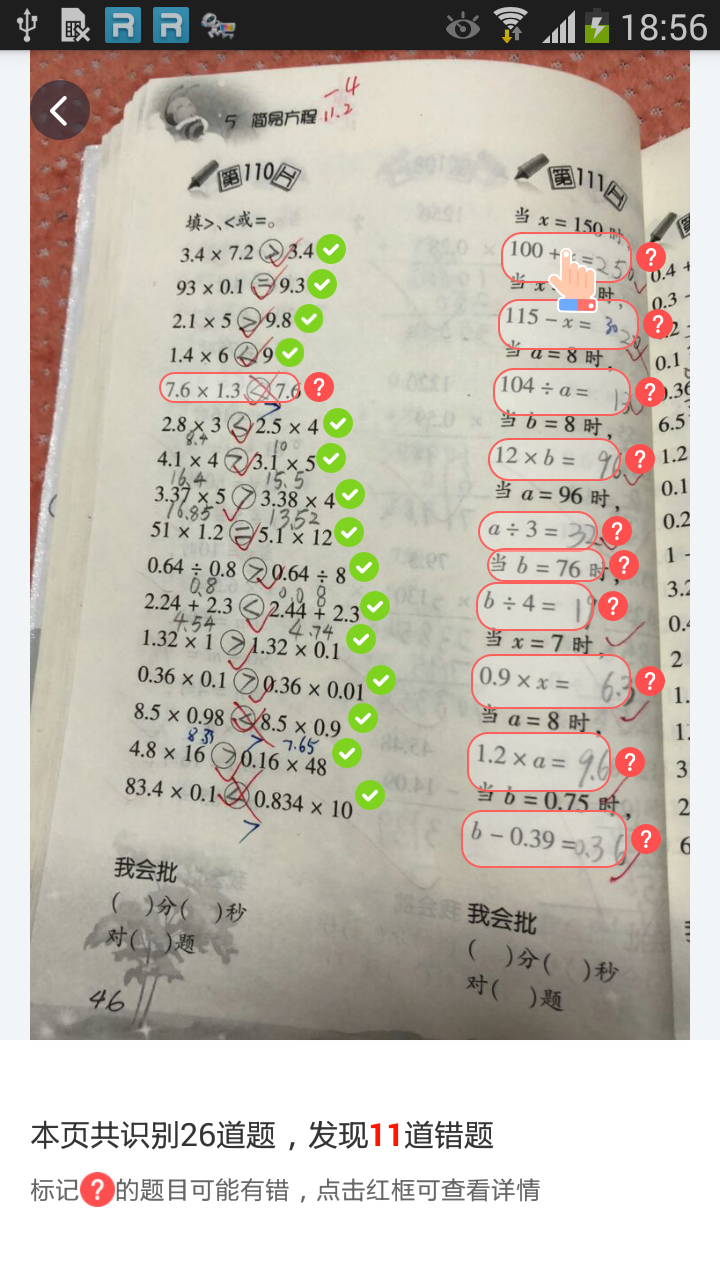 18:56
5 简易方程
-4
11.2
第110天
填>、<或=。
3.4 × 7.2 > 3.4
93 × 0.1 = 9.3
2.1 × 5 > 9.8
1.4 × 6 < 9
7.6 × 1.3 7.6
>
2.8 × 3 < 2.5 × 4
8.4 10
4.1 × 4 > 3.1 × 5
16.4 15.5
3.37 × 5 > 3.38 × 4
16.85 13.52
51 × 1.2 = 5.1 × 12
0.64 ÷ 0.8 > 0.64 ÷ 8
0.8 0.08
2.24 + 2.3 < 2.44 + 2.3
4.54 4.74
1.32 × 1 > 1.32 × 0.1
0.36 × 0.1 > 0.36 × 0.01
8.5 × 0.98 < 8.5 × 0.9
8.33 > 7.65
4.8 × 16 > 0.16 × 48
83.4 × 0.1 < 0.834 × 10
>
我会批
( )分( )秒
对( )题
46
第111天
当 x = 150 时,
100 + =250
当 x 时,
115 − x = 30
当 a = 8 时,
104 ÷ a = 13
当 b = 8 时,
12 × b = 96
当 a = 96 时,
a ÷ 3 = 32
当 b = 76 时,
b ÷ 4 = 19
当 x = 7 时,
0.9 × x = 6.3
当 a = 8 时,
1.2 × a = 9.6
当 b = 0.75 时,
b − 0.39 = 0.36
我会批
( )分( )秒
对( )题
0.4 +
0.3 -
0.1
0.36
6.5
1.2
0.1
0.2
1 -
3.2
0.4
2
1.
1
3
2
6
本页共识别26道题，发现11道错题
标记?的题目可能有错，点击红框可查看详情